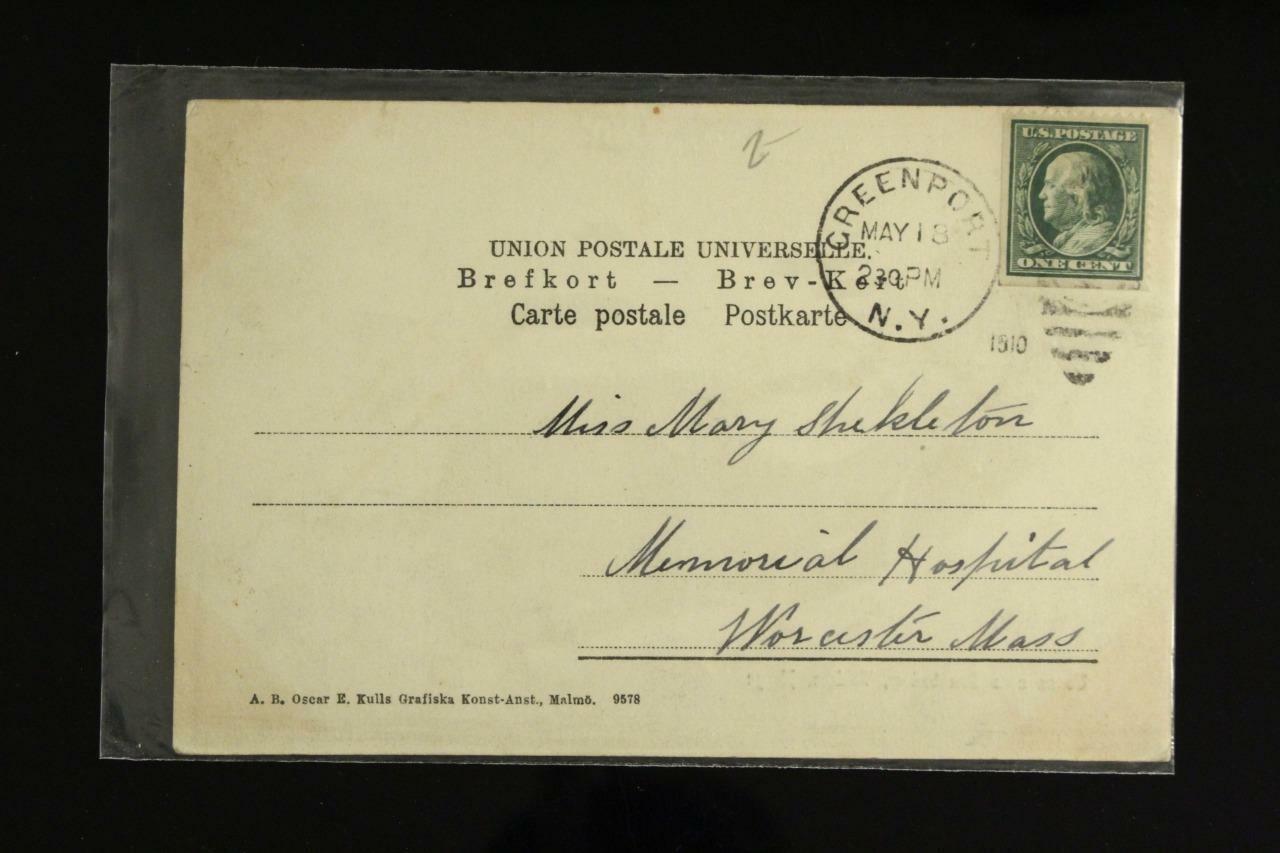 U.S. POSTAGE
ONE CENT
GREENPORT
MAY 18
230 PM
N.Y.
1910
UNION POSTALE UNIVERSELLE.
Brefkort — Brev-Kort
Carte postale Postkarte
Miss Mary Shekleton
Memorial Hospital
Worcester Mass
A. B. Oscar E. Kulls Grafiska Konst-Anst., Malmö. 9578